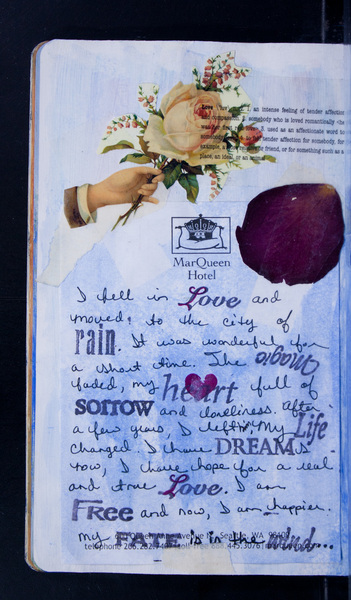 Love an intense feeling of tender affection
somebody who is loved romantically
used as an affectionate word to
tender affection for somebody, for
friend, or for something such as a
place, an ideal, or an animal
MarQueen
Hotel
I fell in Love and
moved to the city of
rain. It was wonderful for
a short time. The magic
faded, my heart full of
sorrow and loneliness. After
a few years, I left. My Life
changed. I have DREAMS
now, I have hope for a real
and true Love. I am
FREE and now, I am happier.
my FATE is in the wind...
Seattle, WA
telephone 206.282.7407 toll free 888.445.3076